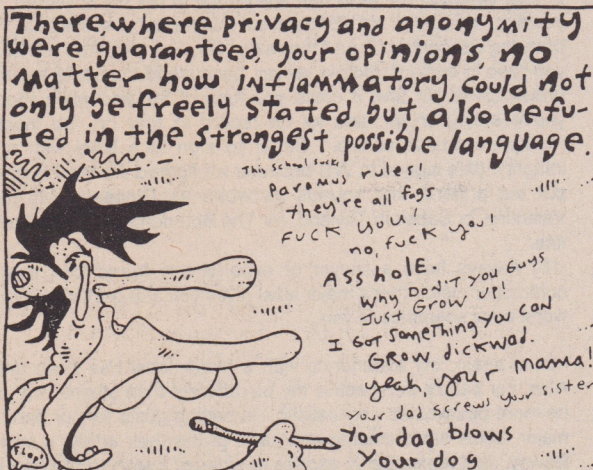 There, where privacy and anonymity
were guaranteed, your opinions, no
matter how inflammatory, could not
only be freely stated, but also refu-
ted in the strongest possible language.
This school sucks
Paramus rules!
they're all fags
FUCK YOU!
no, fuck you!
ASShOLE.
Why DON'T YOU GUYS
JUST GROW UP!
I GOT SOMEThING YOU CAN
GROW, dickwad.
yeah, your mama!
Your dad screws your sister
Yor dad blows
your dog
FLOP!